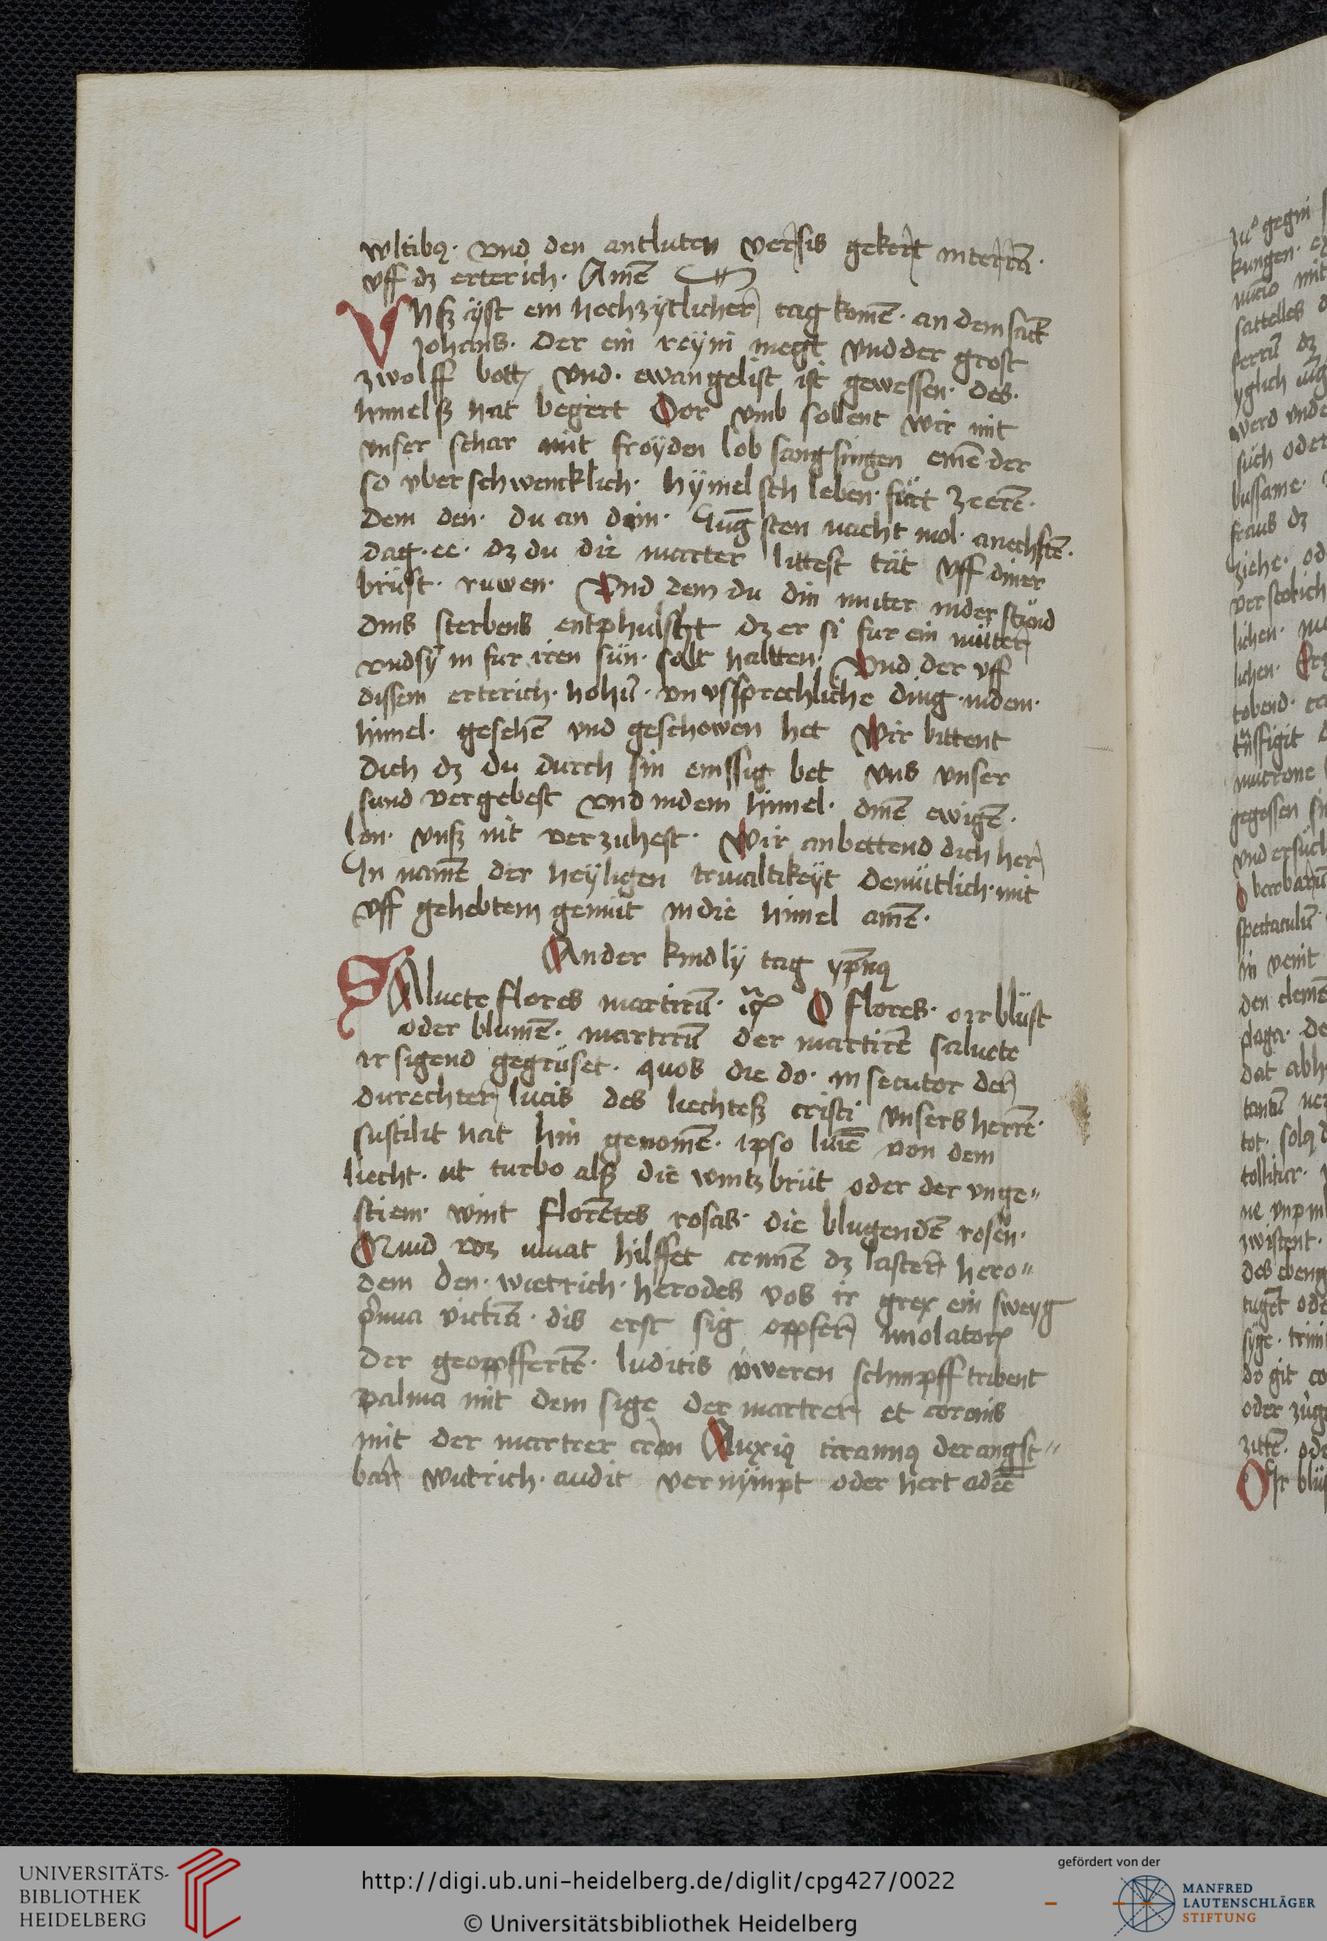 wltibꝫ · vnd den antluten versis gekert interrā ·
vff dz erterich · Amē
Vnsz ist ein hochzÿtlicher tag komē · an dem sāt
Johans · Der ein reÿni megt vnd der grost
zwolff bott vnd · ewangelist ist gewessen · des ·
himelsz hat begert Dor vmb sollent wir mit
vnser schar mit fröyden lob sang singen einē der
so vber schwencklich · hÿmelsch leben · fürt zeerē ·
dem den · du an dem · Jūgsten nacht mol · anechstē ·
dag · ee · dz du die marter littest tät vff diner
brüst · ruwen · Vnd dem du din muter inder stünd
dins sterbens entphulscht dz er si fur ein müter
vnd sÿ in fur iren sün · solt haltten · Vnd der vff
dissem erterich · hohū · vnussprechliche ding · indem ·
himel · gesehē vnd geschowen het Wir bittent
dich dz du durch sin emssig bet vns vnser
sund vergebest vnd indem himel · dinē ewigē ·
lon · vnsz nit verzuhest · Wir anbettend dich her
In namē der heÿligen trivaltikeÿt demütlich · mit
vff gehebtem gemüt in die himel amē ·
Ander kindlÿ tag ypn̄ꝫ
SAluete flores martirū · O flores · o ir blüst
oder blumē · martirū der martirē saluete
ir sigend gegrüset · quos die do · insecutor der
durechter lucis des liechtesz cristi vnsers herrē ·
sustilit hat hin genomē · ipso luīe von dem
liecht · ut turbo alsz die wintzbrüt oder der vnge〃
stiem · wint florētes rosas · die blugendē rosen ·
Quid vivat hilffet crimē dz laster hero〃
dem den · wietrich · herodes vos ir grex ein sweyg
p̄ma victīa · dis erst sig oppfer imolator
der geoppffertē · luditis v̈weren schimpff tribent
palma mit dem sige der martrer et coronis
mit der martrer cron Anxiꝫ tirannꝫ der angst〃
bar wutrich · audit vernÿmpt oder hert adeē
http://digi.ub.uni-heidelberg.de/diglit/cpg427/0022
© Universitätsbibliothek Heidelberg
UNIVERSITÄTS-
BIBLIOTHEK
HEIDELBERG
gefördert von der
MANFRED
LAUTENSCHLÄGER
STIFTUNG